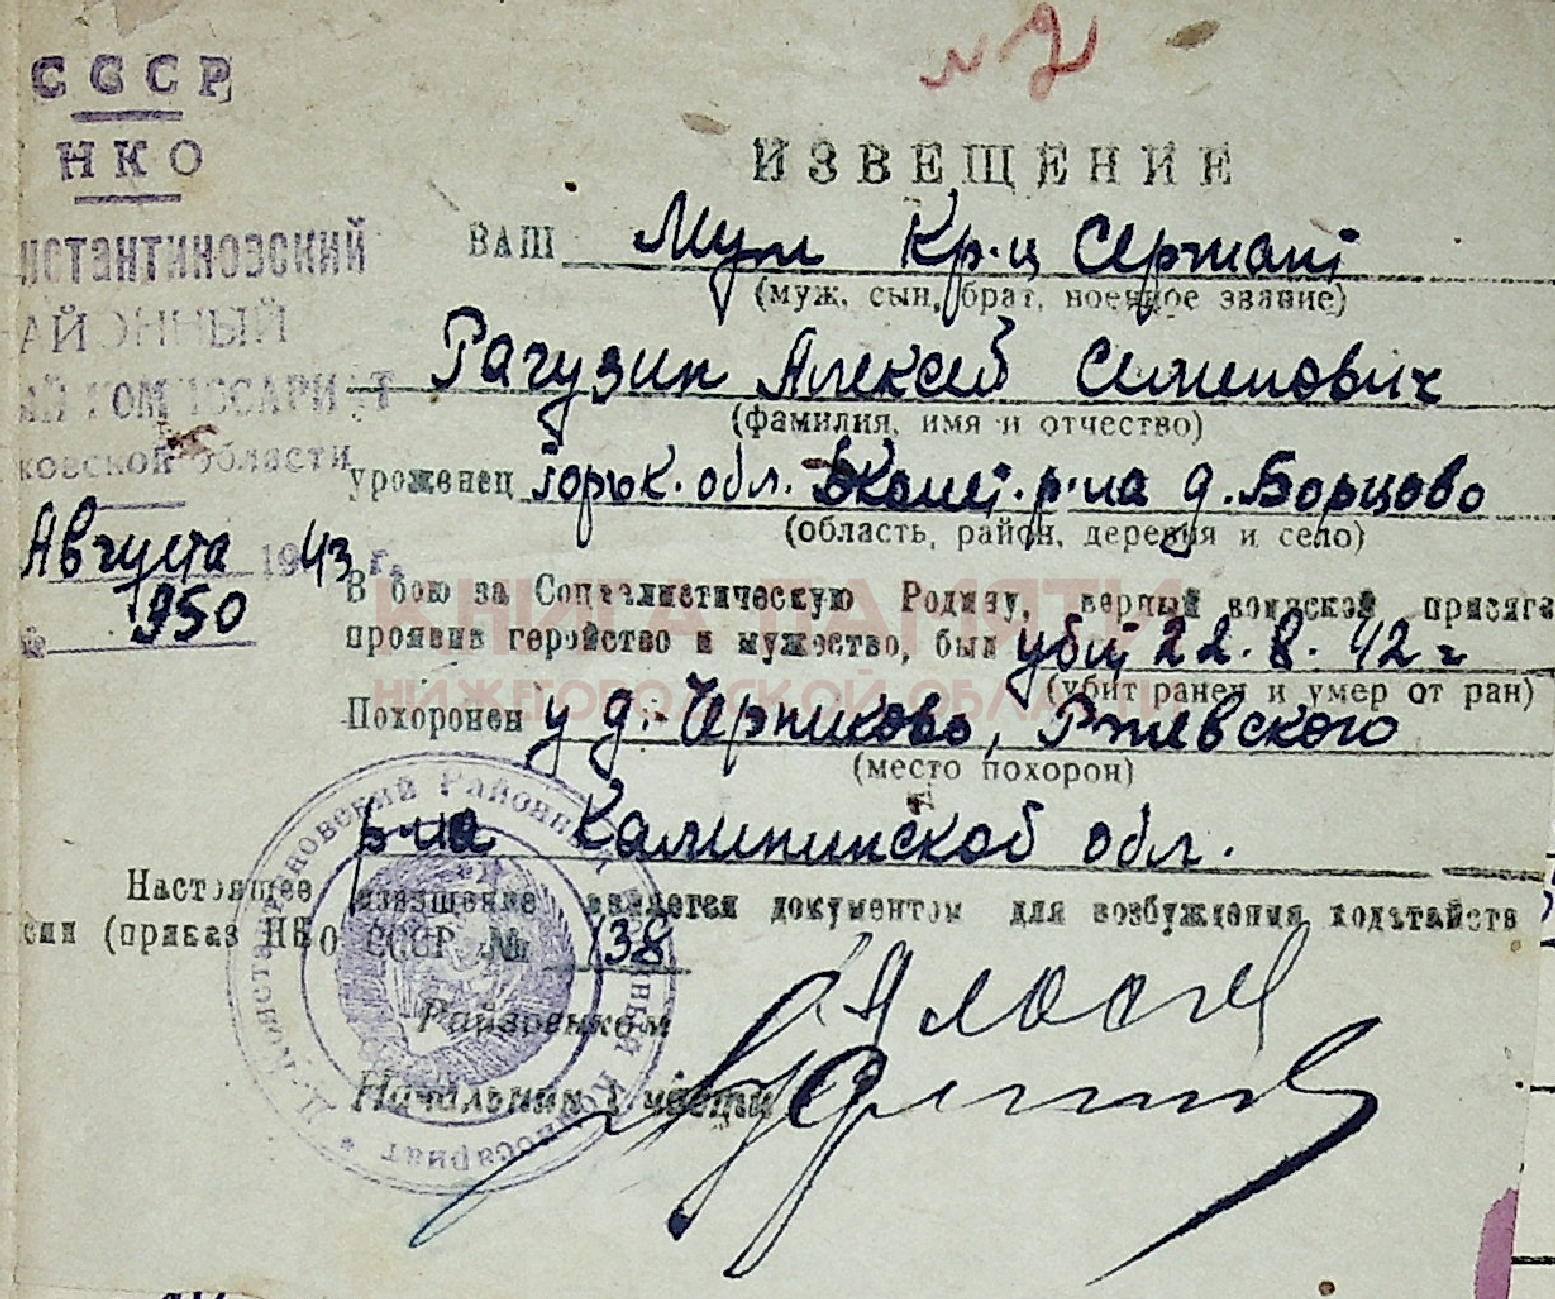 СССР
НКО
нстантиновский
АЙОННЫЙ
ЫЙ КОМИССАРИАТ
ковской области
Августа 1943 г.
№ 950
№ 2
ИЗВЕЩЕНИЕ
ВАШ Муж Кр-ц Сержант
(муж, сын, брат, военное звание)
Рагузин Алексей Семенович
(фамилия, имя и отчество)
уроженец Горьк. обл. Д Конст. р-на д. Борцово
(область, район, деревня и село)
В бою за Социалистическую Родину, верный воинской присяге
проявив геройство и мужество, был убит 22.8.42 г
(убит ранен и умер от ран)
Похоронен у д. Черниково, Ржевского
(место похорон)
р-на Калининской обл.
Настоящее извещение является документом для возбуждения ходатайств
сии (приказ НКО СССР № 138
Райвоенком
Начальник 1 части
Д.-Константиновский Районный Военный Комиссариат
КНИГА ПАМЯТИ
НИЖЕГОРОДСКОЙ ОБЛАСТИ